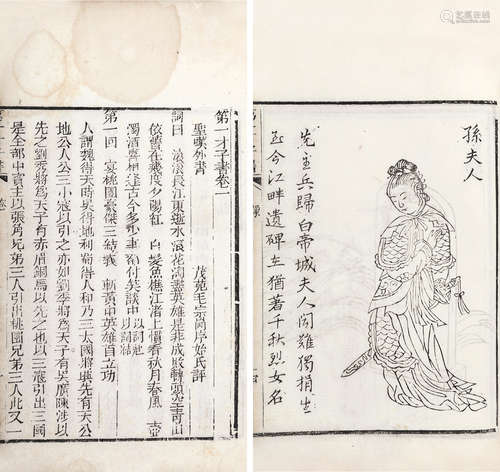 第一才子書卷
聖嘆外書
茂苑毛宗崗序始氏評
詞曰 滾滾長江東逝水浪花淘盡英雄是非成敗轉頭空青山
依舊在幾度夕陽紅 白髮魚樵江渚上慣看秋月春風一壺
濁酒喜相逢古今多少事都付笑談中 以詞起以詞結
第一回 宴桃園豪傑三結義 斬黃巾英雄首立功
人謂魏得天時吳得地利蜀得人和乃三大國將興先有天公
地公人公三小寇以引之亦如劉季將為天子有吳廣陳涉以
先之劉秀將為天子有赤眉銅馬以先之也以三寇引出三國
是全部中賓主以張角兄弟三人引出桃園兄弟三人此又一
孫夫人
先主兵歸白帝城夫人聞難獨捐生
至今江畔遺碑在猶著千秋烈女名
艺狐在线